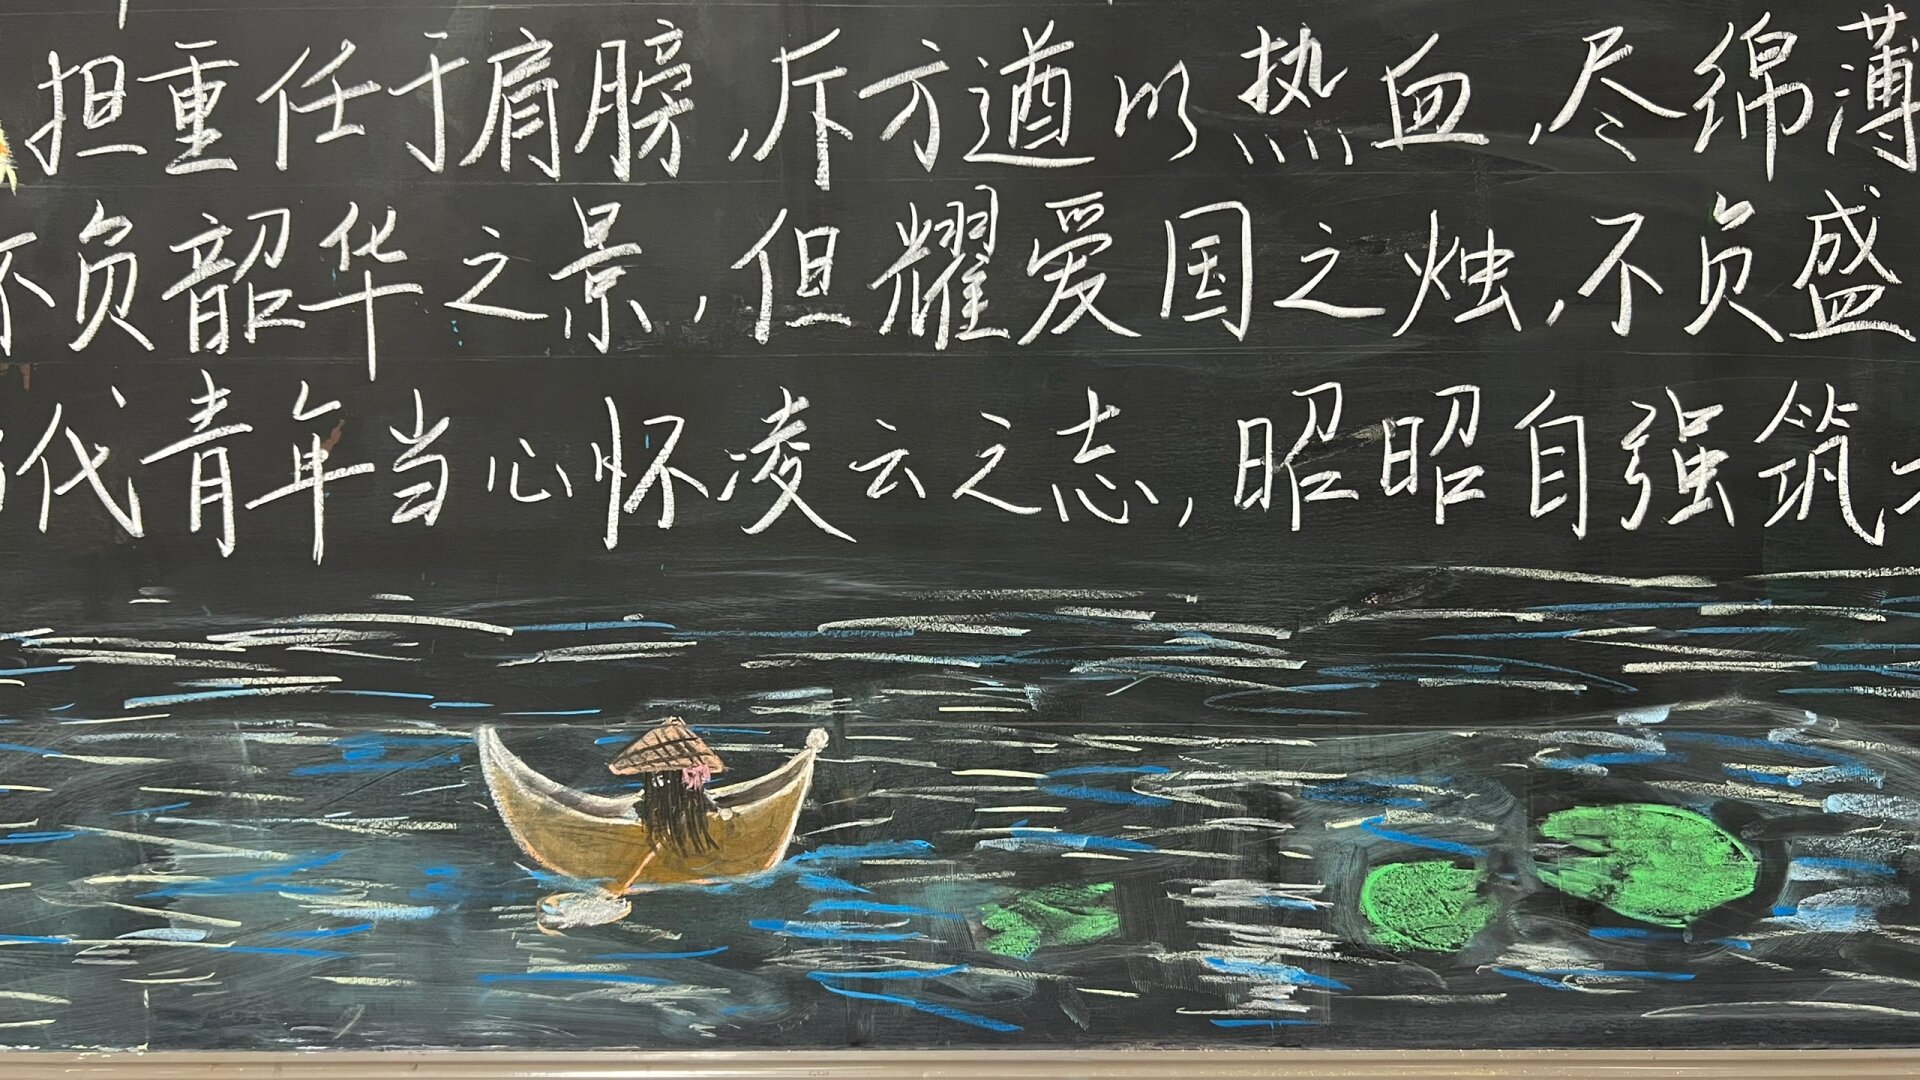 担重任于肩膀,斥方遒以热血,尽绵薄
不负韶华之景,但耀爱国之烛,不负盛
代青年当心怀凌云之志,昭昭自强筑